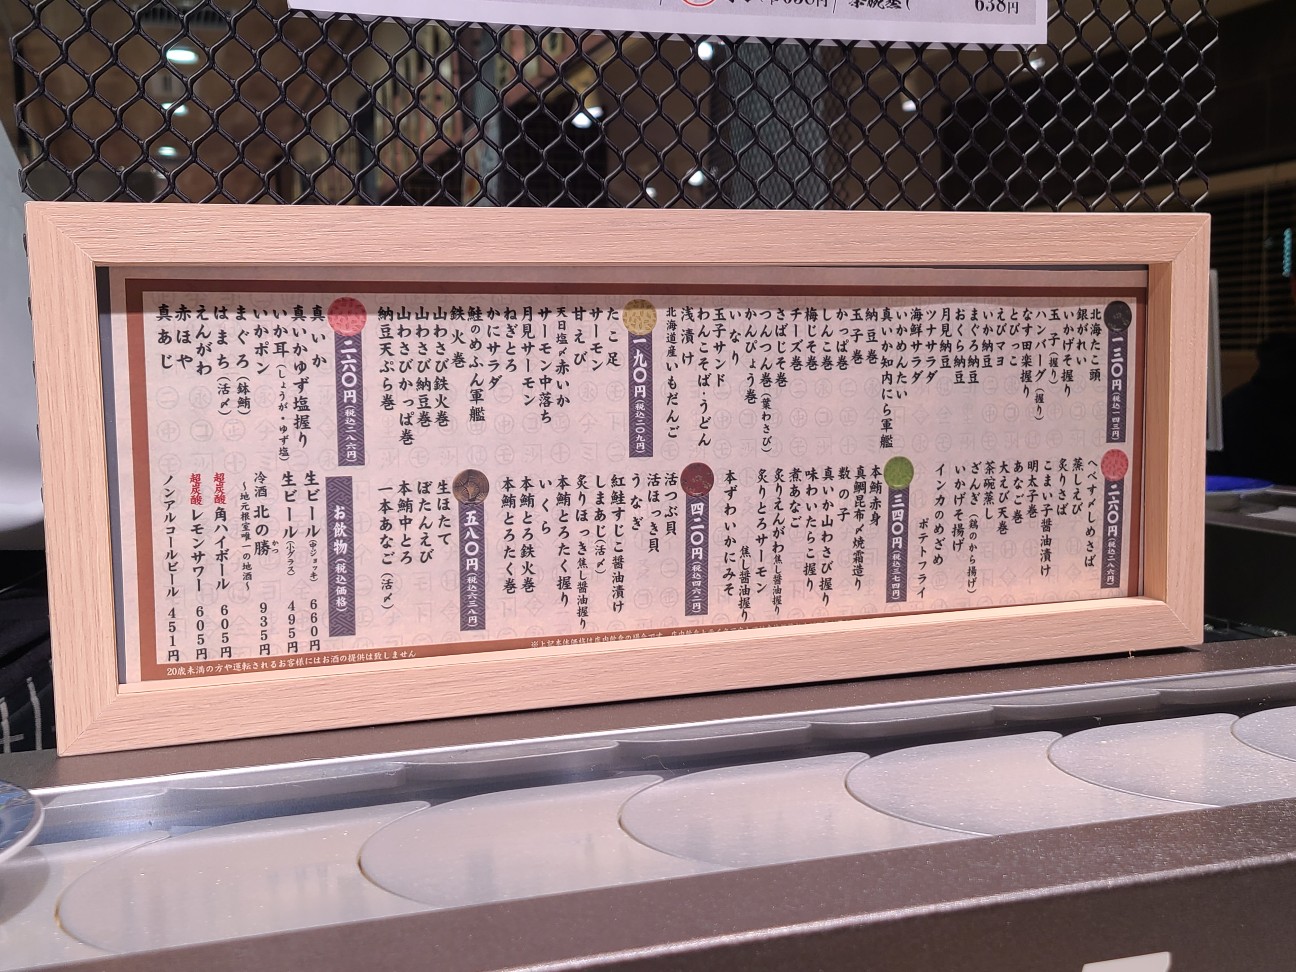 638円
一三〇円(税込一四三円)
北海たこ頭
銀がれい
いかげそ握り
玉子(握り)
ハンバーグ(握り)
なす田楽握り
とびっこ
えびマヨ
いか納豆
まぐろ納豆
おくら納豆
月見納豆
ツナサラダ
海鮮サラダ
いかめんたい
真いか知内にら軍艦
納豆巻
玉子巻
かっぱ巻
しんこ巻
梅じそ巻
チーズ巻
さばじそ巻
つんつん巻(葉わさび)
かんぴょう巻
いなり
玉子サンド
わんこそば・うどん
浅漬け
北海道産いもだんご
一九〇円(税込二〇九円)
たこ足
サーモン
甘えび
天日塩〆赤いか
サーモン中落ち
月見サーモン
ねぎとろ
かにサラダ
鮭のめふん軍艦
鉄火巻
山わさび鉄火巻
山わさび納豆巻
山わさびかっぱ巻
納豆天ぷら巻
二六〇円(税込二八六円)
真いか
真いかゆず塩握り
いか耳(しょうが・ゆず塩)
いかポン
まぐろ(鉢鮪)
はまち(活〆)
えんがわ
赤ほや
真あじ
二六〇円(税込二八六円)
へべす〆しめさば
蒸しえび
炙りさば
こまい子醤油漬け
明太子巻
あなご巻
大えび天巻
茶碗蒸し
ざんぎ(鶏のから揚げ)
いかげそ揚げ
インカのめざめ
ポテトフライ
三四〇円(税込三七四円)
本鮪赤身
数の子
真鯛昆布〆焼霜造り
真いか山わさび握り
味わいたらこ握り
煮あなご
炙りえんがわ焦し醤油握り
炙りとろサーモン
焦し醤油握り
本ずわいかにみそ
四二〇円(税込四六二円)
活つぶ貝
活ほっき貝
うなぎ
紅鮭すじこ醤油漬け
しまあじ(活〆)
炙りほっき焦し醤油握り
本鮪とろたく握り
いくら
本鮪とろ鉄火巻
本鮪とろたく巻
五八〇円(税込六三八円)
生ほたて
ぼたんえび
本鮪中とろ
一本あなご(活〆)
お飲物(税込価格)
生ビール(中ジョッキ) 660円
生ビール(小グラス) 495円
冷酒 北の勝 935円
かつ
～地元根室唯一の地酒～
超炭酸 角ハイボール 605円
超炭酸 レモンサワー 605円
ノンアルコールビール 451円
20歳未満の方や運転されるお客様にはお酒の提供は致しません